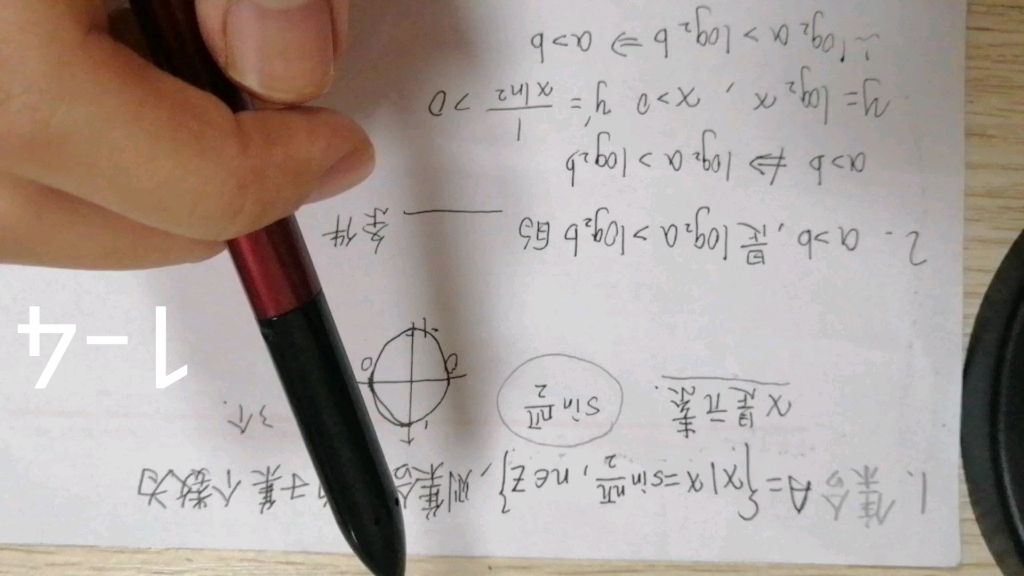 1. 集合 A = {x | x = sin nπ/2, n∈Z}, 则集合 子集个数为
x是元素. sin nπ/2 0 1 0 -1 3个.
2. a>b, 是 log₂a > log₂b 的 ____ 条件
a>b ⇏ log₂a > log₂b
y = log₂x, x>0 y' = 1/(x ln2) > 0
∴ log₂a > log₂b ⇒ a>b
1-4